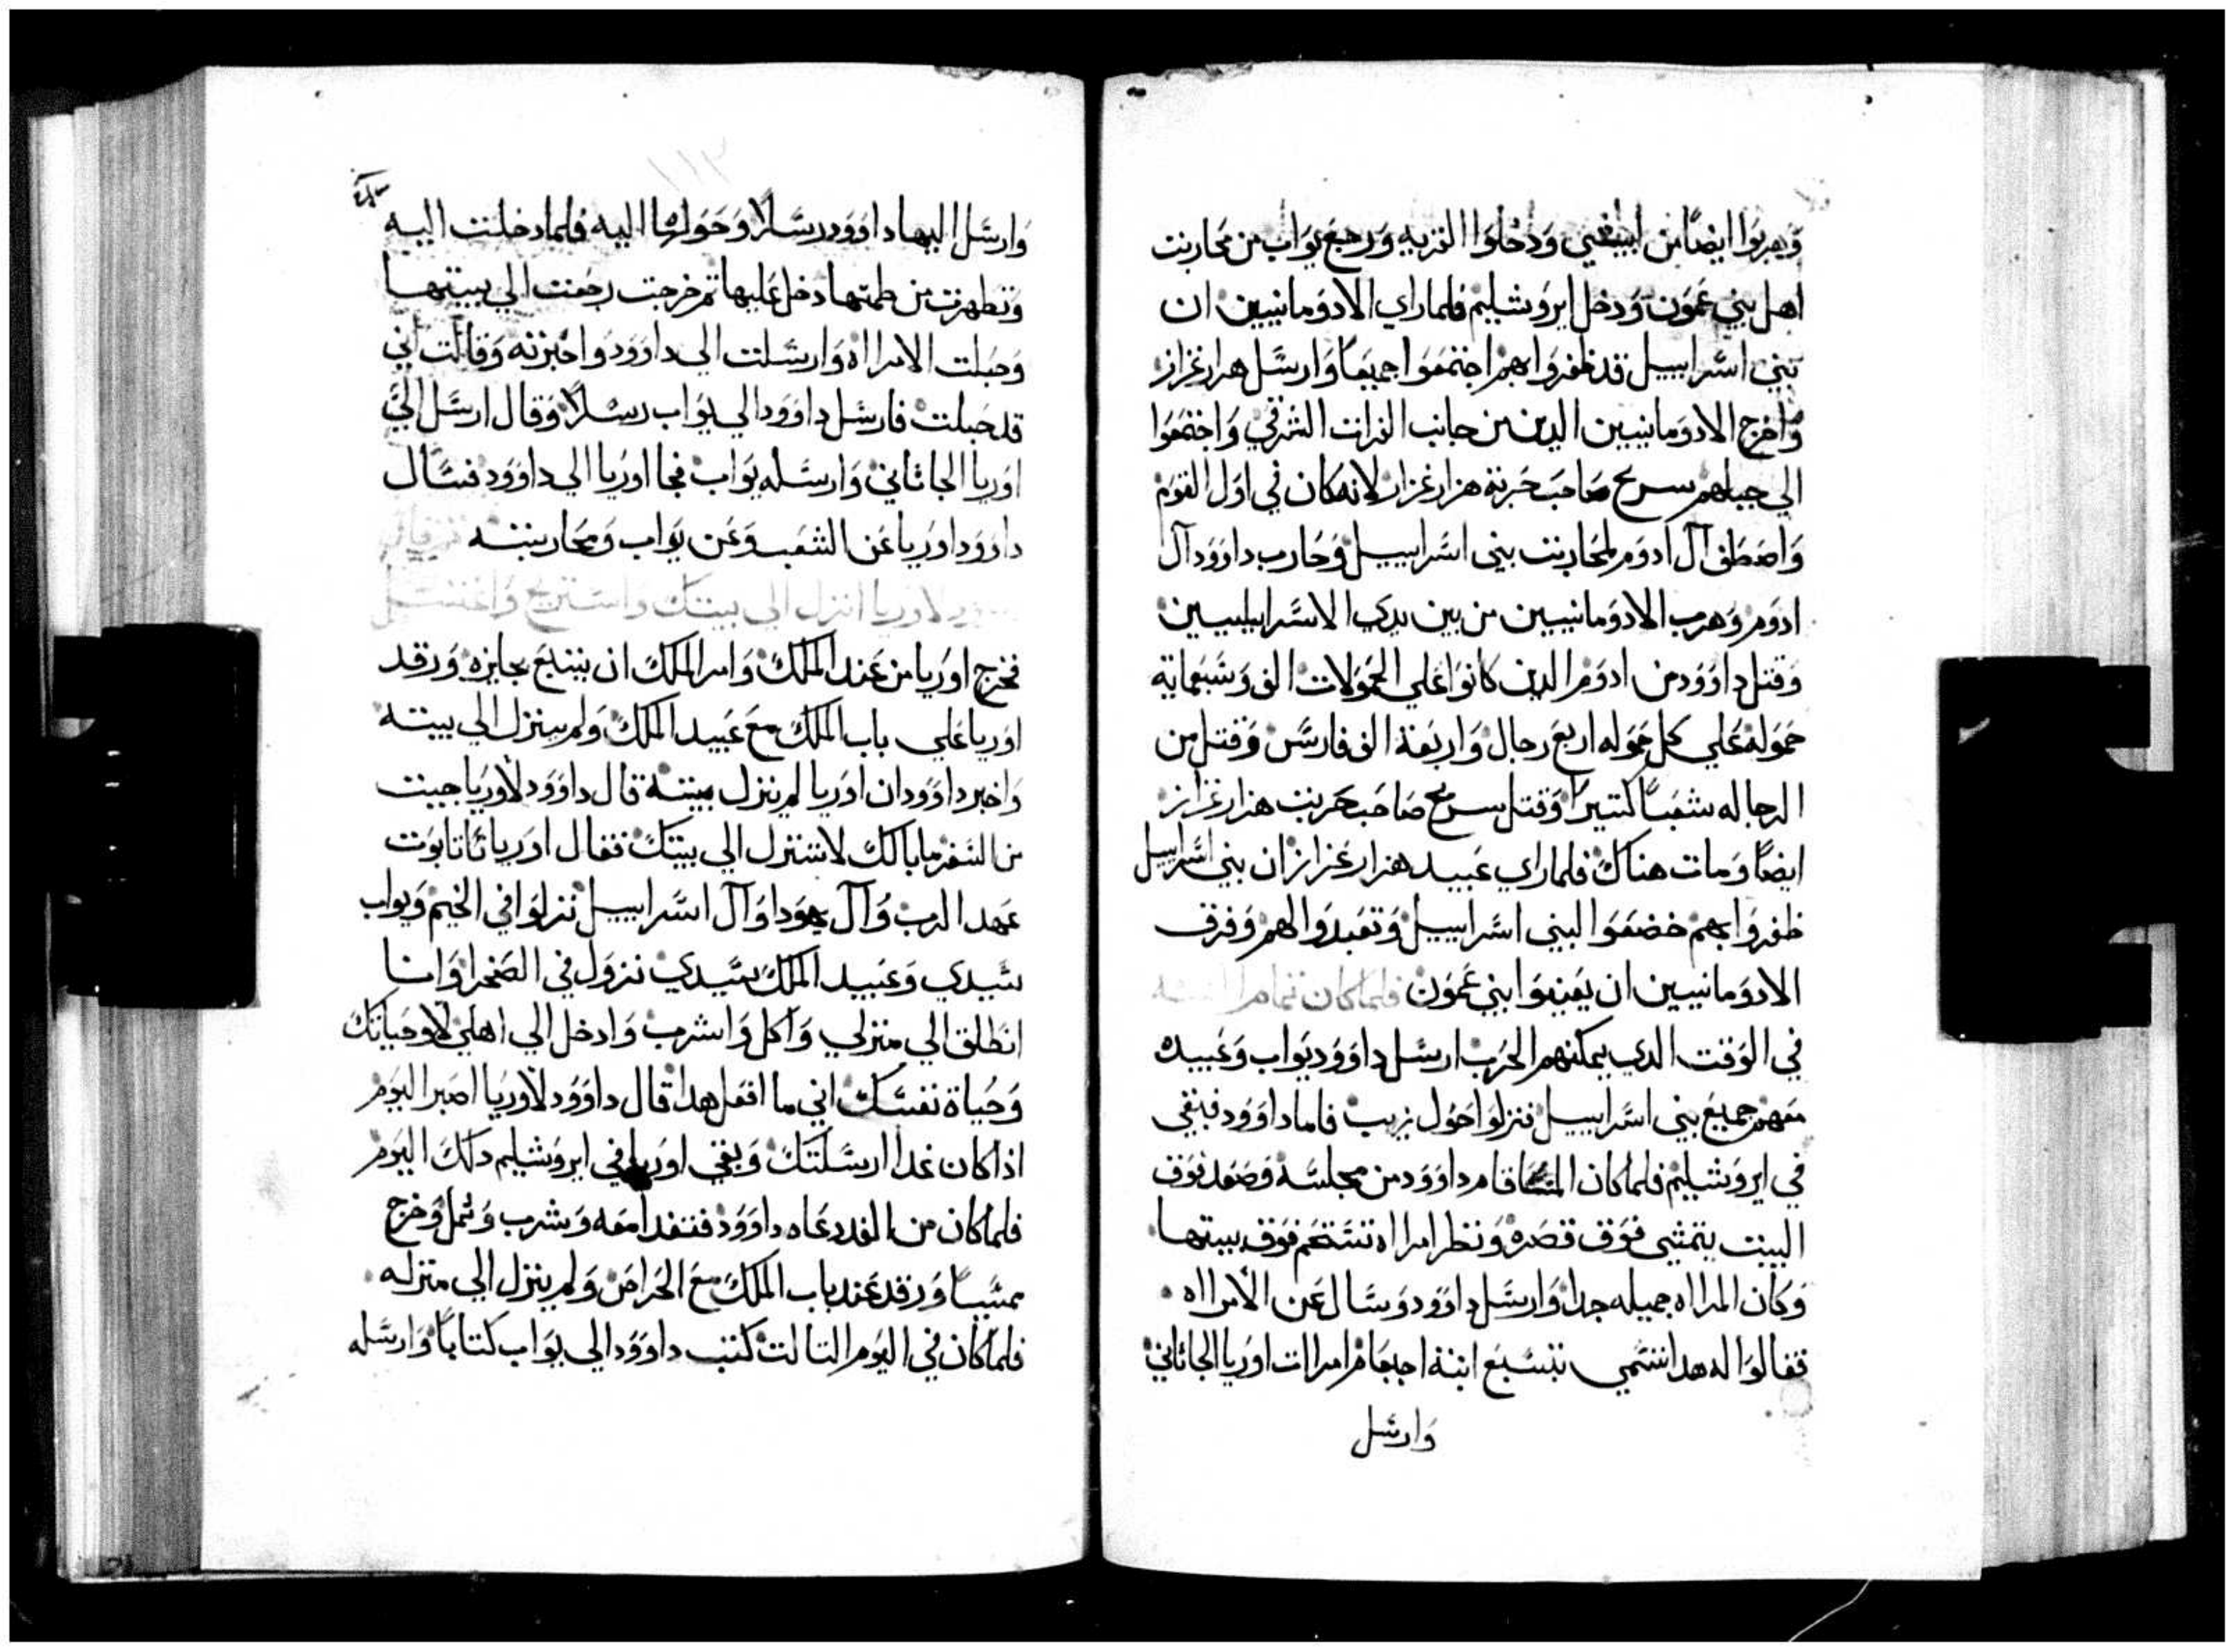 وهربوا ايضًا من ابيشي ودخلوا القريه ورجع يواب من محاربت
اهل بني عمون ودخل ايروشليم فلما راي الادومانيين ان
بني اسراييل قد ظفروا بهم اجتمعوا جميعًا وارسل هزارغزاز
واخرج الادومانيين الدين من جانب الفرات الشرقي واجتمعوا
الي جبلهم سريح صاحب حربة هزارغزاز لانه كان في اول القوم
واصطف ال ادوم لمحاربت بني اسراييل وحارب داوود ال
ادوم وهرب الادومانيين من بين يدي الاسراييليين
وقتل داوود من ادوم الدين كانوا علي الحمولات الف وسبعمايه
حموله علي كل حموله اربع رجال واربعة الف فارس وقتل من
الرجاله شعبًا كتيرًا وقتل سريح صاحب حربت هزارغزاز
ايضًا ومات هناك فلما راي عبيد هزارغزاز ان بني اسراييل
ظفروا بهم خضعوا لبني اسراييل وتعبدوا لهم وفرق
الادومانيين ان يعينوا بني عمون فلما كان تمام السنه
في الوقت الدي يمكنهم الحرب ارسل داوود يواب وعبيده
معهم جميع بني اسراييل فنزلوا حول زيب فاما داوود فبقي
في ايروشليم فلما كان المسا قام داوود من مجلسه وصعد فوق
البيت يتمشي فوق قصره ونظر امراه تستحم فوق بيتها
وكان المراه جميله جدا وارسل داوود وسال عن الامراه
فقالوا له هدا تسمي بتسبع ابنة احيعام امرات اوريا الجاتاني
وارسل
وارسل اليها داوود رسلا وحولها اليه فلما دخلت اليه
وتطهرت من طمتها دخل عليها تم خرجت رجعت الي بيتها
وحبلت الامراه وارسلت الي داوود واخبرته وقالت اني
قد حبلت فارسل داوود الي يواب رسلا وقال ارسل الي
اوريا الجاتاني وارسله يواب فجا اوريا الي داوود فسال
داوود اوريا عن الشعب وعن يواب ومحاربته
لاوريا انزل الي بيتك واستريح واغتسل
فخرج اوريا من عند الملك وامر الملك ان يتبع بجايزه ورقد
اوريا علي باب الملك مع عبيد الملك ولم ينزل الي بيته
واخبر داوود ان اوريا لم ينزل بيته قال داوود لاوريا جيت
من السفر ما بالك لا تنزل الي بيتك فقال اوريا تابوت
عهد الرب وال يهودا وال اسراييل نزلوا في الخيم ويواب
سيدي وعبيد الملك سيدي نزول في الصحرا وانا
انطلق الي منزلي واكل واشرب وادخل الي اهلي لا وحياتك
وحياة نفسك اني ما افعل هدا قال داوود لاوريا اصبر اليوم
اذا كان غدا ارسلتك وبقي اوريا في ايروشليم دلك اليوم
فلما كان من الغد دعاه داوود فتغدا معه وشرب وثمل وخرج
ممسيًا ورقد عند باب الملك مع الحراص ولم ينزل الي منزله
فلما كان في اليوم التالت كتب داوود الي يواب كتابًا وارسله